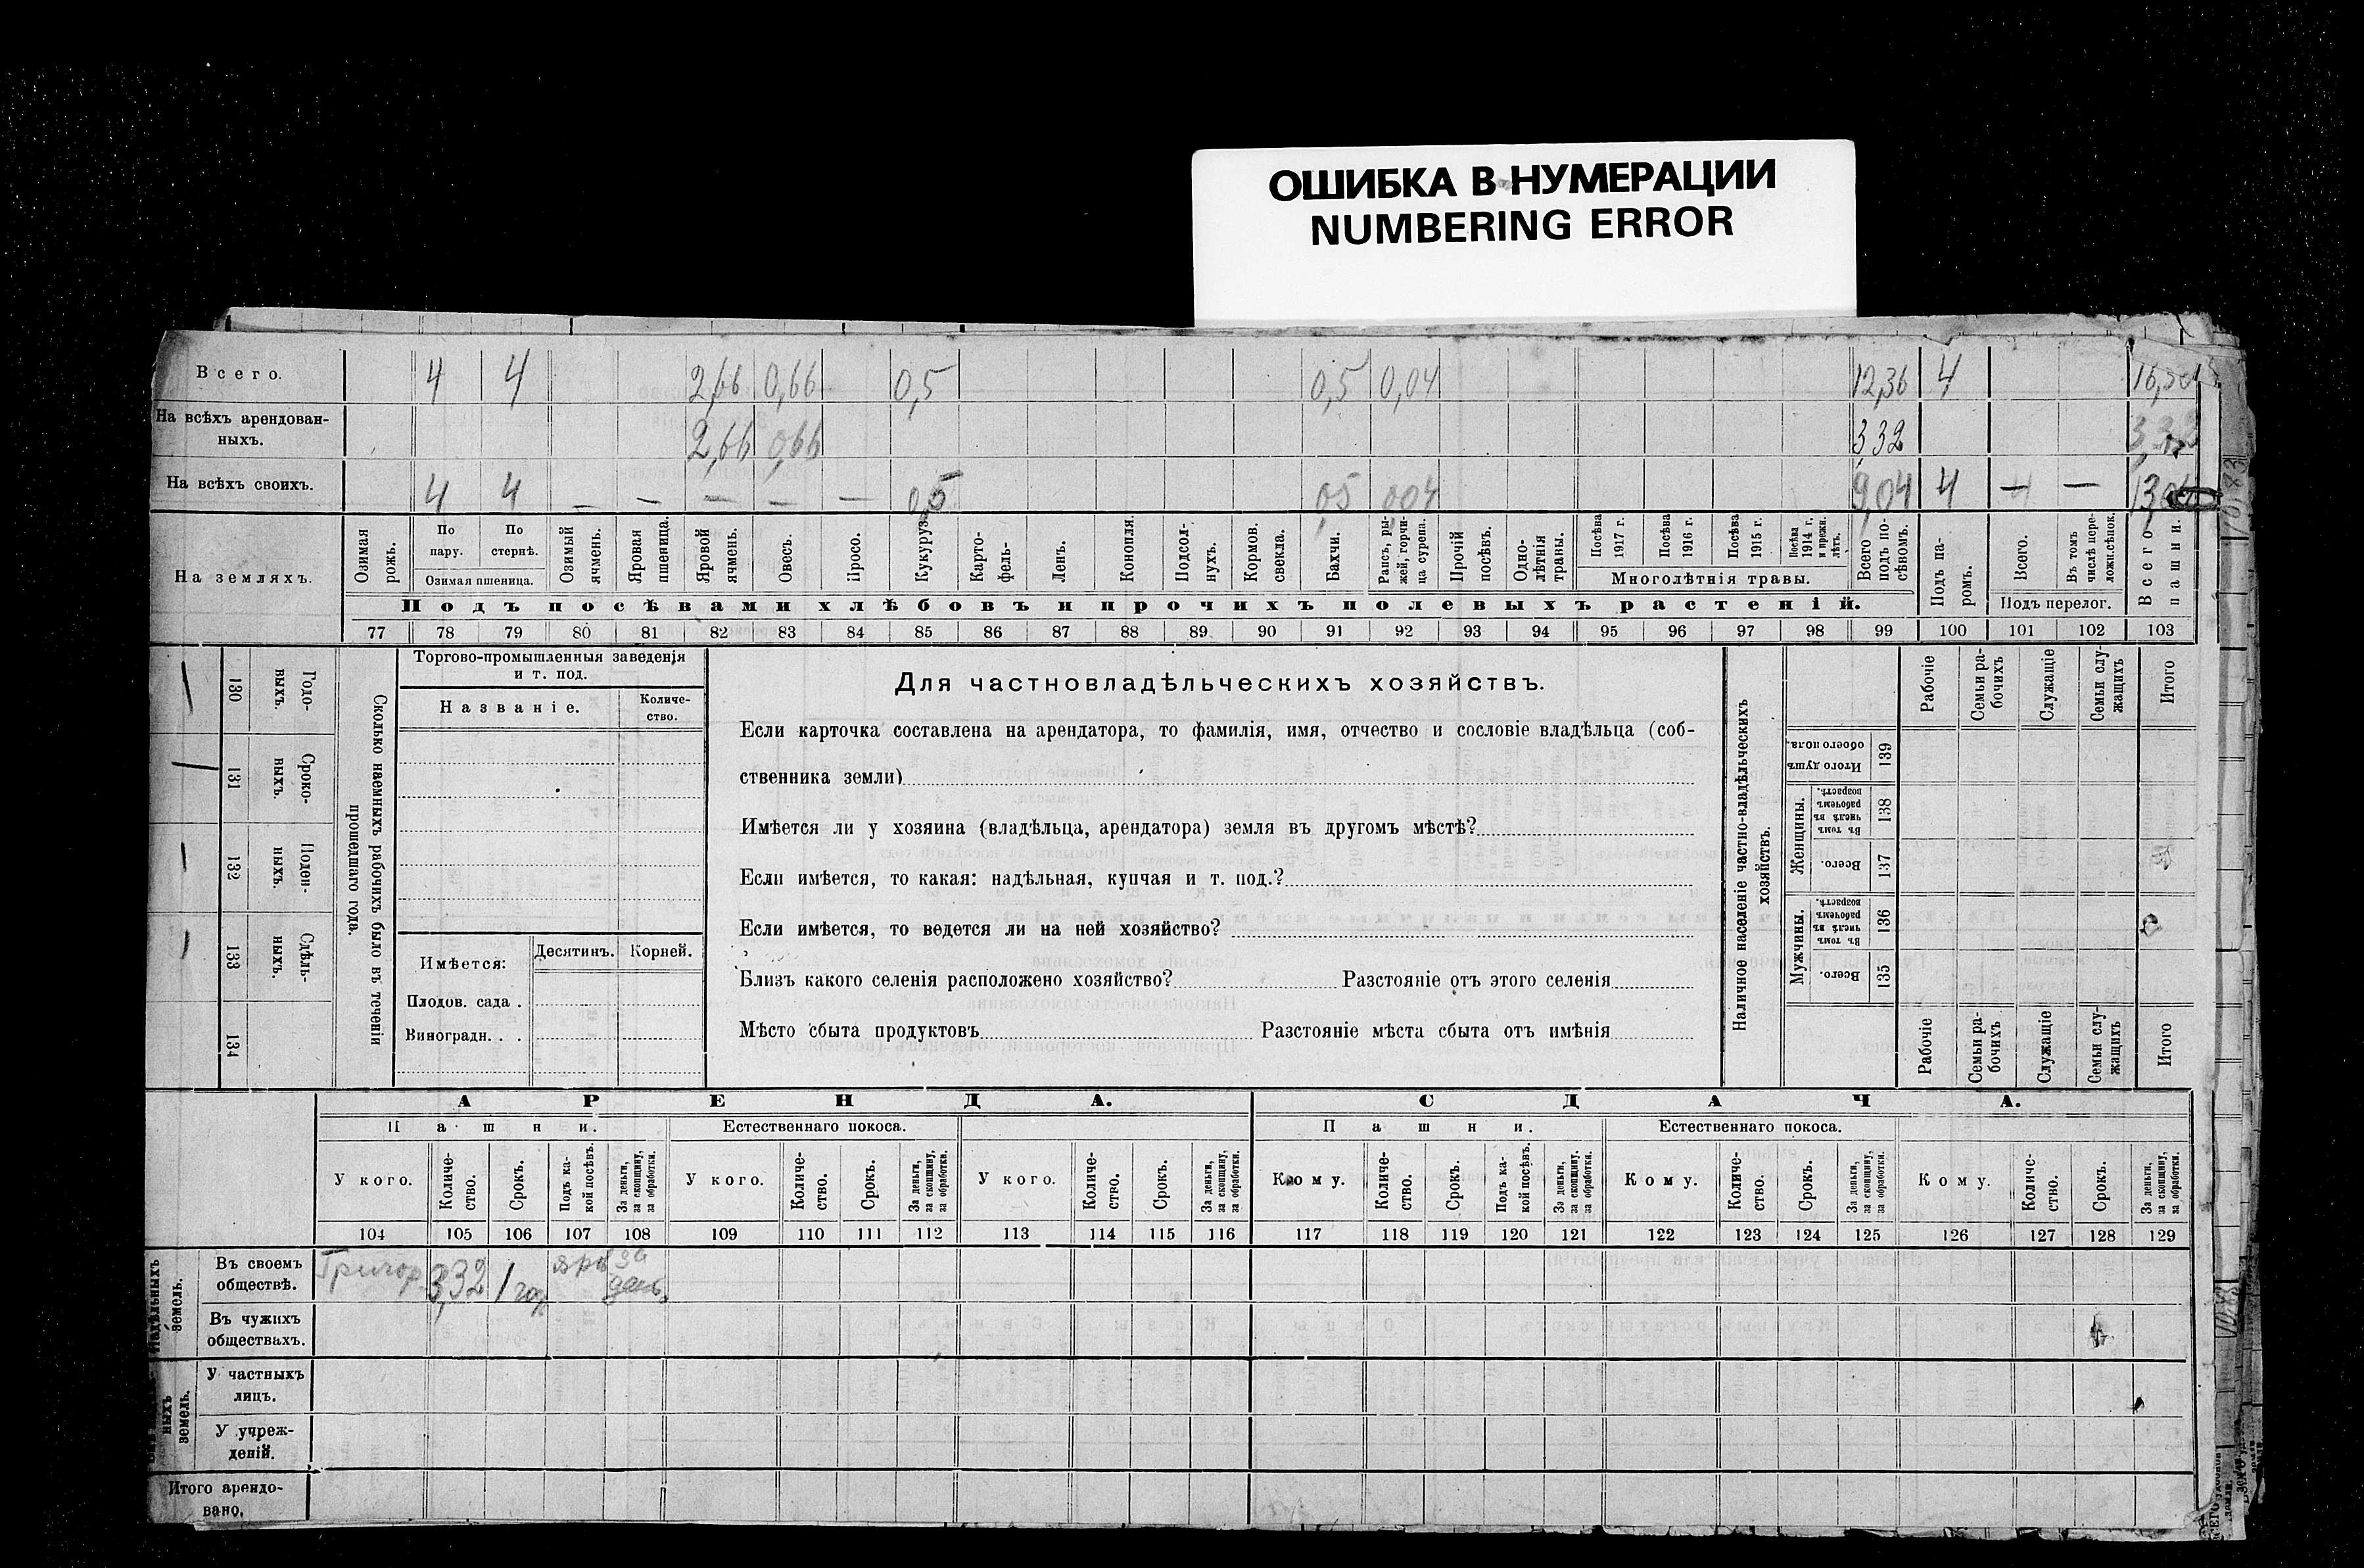 ОШИБКА В НУМЕРАЦИИ
NUMBERING ERROR
Всего. 4 4 2,66 0,66 0,5 0,5 0,04 12,36 4
На всѣхъ арендован-
ныхъ. 2,66 0,66 3,32
На всѣхъ своихъ. 4 4 — — — — — 0,5 0,5 0,04 9,04 4 — —
На земляхъ.
Озимая рожь.
По пару.
По стернѣ.
Озимая пшеница.
Озимый ячмень.
Яровая пшеница.
Яровой ячмень.
Овесъ.
Просо.
Кукуруз
Карто-
фель-
Ленъ.
Конопля.
Подсол-
нухъ.
Кормов. свекла.
Бахчи.
Рапсъ, ры-
жей, горчи-
ца сурепа.
Прочій посѣвъ.
Одно-
лѣтнія травы.
Посѣва 1917 г.
Посѣва 1916 г.
Посѣва 1915 г.
Посѣва 1914 г. и прежн. лѣтъ.
Многолѣтнія травы.
Всего подъ по-
сѣвомъ.
Подъ посѣвами хлѣбовъ и прочихъ полевыхъ растеній.
Подъ па-
ромъ.
Всего.
Въ томъ числѣ пере-
лож.сѣнок.
Подъ перелог.
Всего пашни.
77 78 79 80 81 82 83 84 85 86 87 88 89 90 91 92 93 94 95 96 97 98 99 100 101 102 103
130 Годо-
выхъ.
131 Сроко-
ныхъ.
132 Поден-
ныхъ.
133 Сдѣль-
ныхъ.
134
Сколько наемныхъ рабочихъ было въ теченіи
прошедшаго года.
Торгово-промышленныя заведенія
и т. под.
Названіе.
Количе-
ство.
Имѣется:
Десятинъ. Корней.
Плодов. сада .
Виноградн. . .
Для частновладѣльческихъ хозяйствъ.
Если карточка составлена на арендатора, то фамилія, имя, отчество и сословіе владѣльца (соб-
ственника земли)
Имѣется ли у хозяина (владѣльца, арендатора) земля въ другомъ мѣстѣ?
Если имѣется, то какая: надѣльная, купчая и т. под.?
Если имѣется, то ведется ли на ней хозяйство?
Близъ какого селенія расположено хозяйство? Разстояніе отъ этого селенія
Мѣсто сбыта продуктовъ Разстояніе мѣста сбыта отъ имѣнія
Наличное населеніе частно-владѣльческихъ
хозяйствъ.
Рабочіе
Семьи ра-
бочихъ
Служащіе
Семьи слу-
жащихъ
Итого
Итого душъ обоего пола. 139
Женщины.
Въ томъ числѣ въ рабочемъ возрастѣ. 138
Всего. 137
Мужчины.
Въ томъ числѣ въ рабочемъ возрастѣ. 136
Всего. 135
Рабочіе
Семьи ра-
бочихъ
Служащіе
Семьи слу-
жащихъ
Итого
АРЕНДА. СДАЧА.
Пашни. Естественнаго покоса. Пашни. Естественнаго покоса.
У кого.
Количе-
ство.
Срокъ.
Подъ ка-
кой посѣвъ.
За деньги, за скопщину, за обработки.
У кого.
Количе-
ство.
Срокъ.
За деньги, за скопщину, за обработки.
У кого.
Количе-
ство.
Срокъ.
За деньги, за скопщину, за обработки.
Кому.
Количе-
ство.
Срокъ.
Подъ ка-
кой посѣвъ.
За деньги, за скопщину, за обработки.
Кому.
Количе-
ство.
Срокъ.
За деньги, за скопщину, за обработки.
Кому.
Количе-
ство.
Срокъ.
За деньги, за скопщину, за обработки.
104 105 106 107 108 109 110 111 112 113 114 115 116 117 118 119 120 121 122 123 124 125 126 127 128 129
Надѣльныхъ земель.
Въ своемъ
обществѣ. 3,32 1 год за
Въ чужихъ
обществахъ.
ныхъ земель.
У частныхъ
лицъ.
У учреж-
деній.
Итого арендо-
вано.